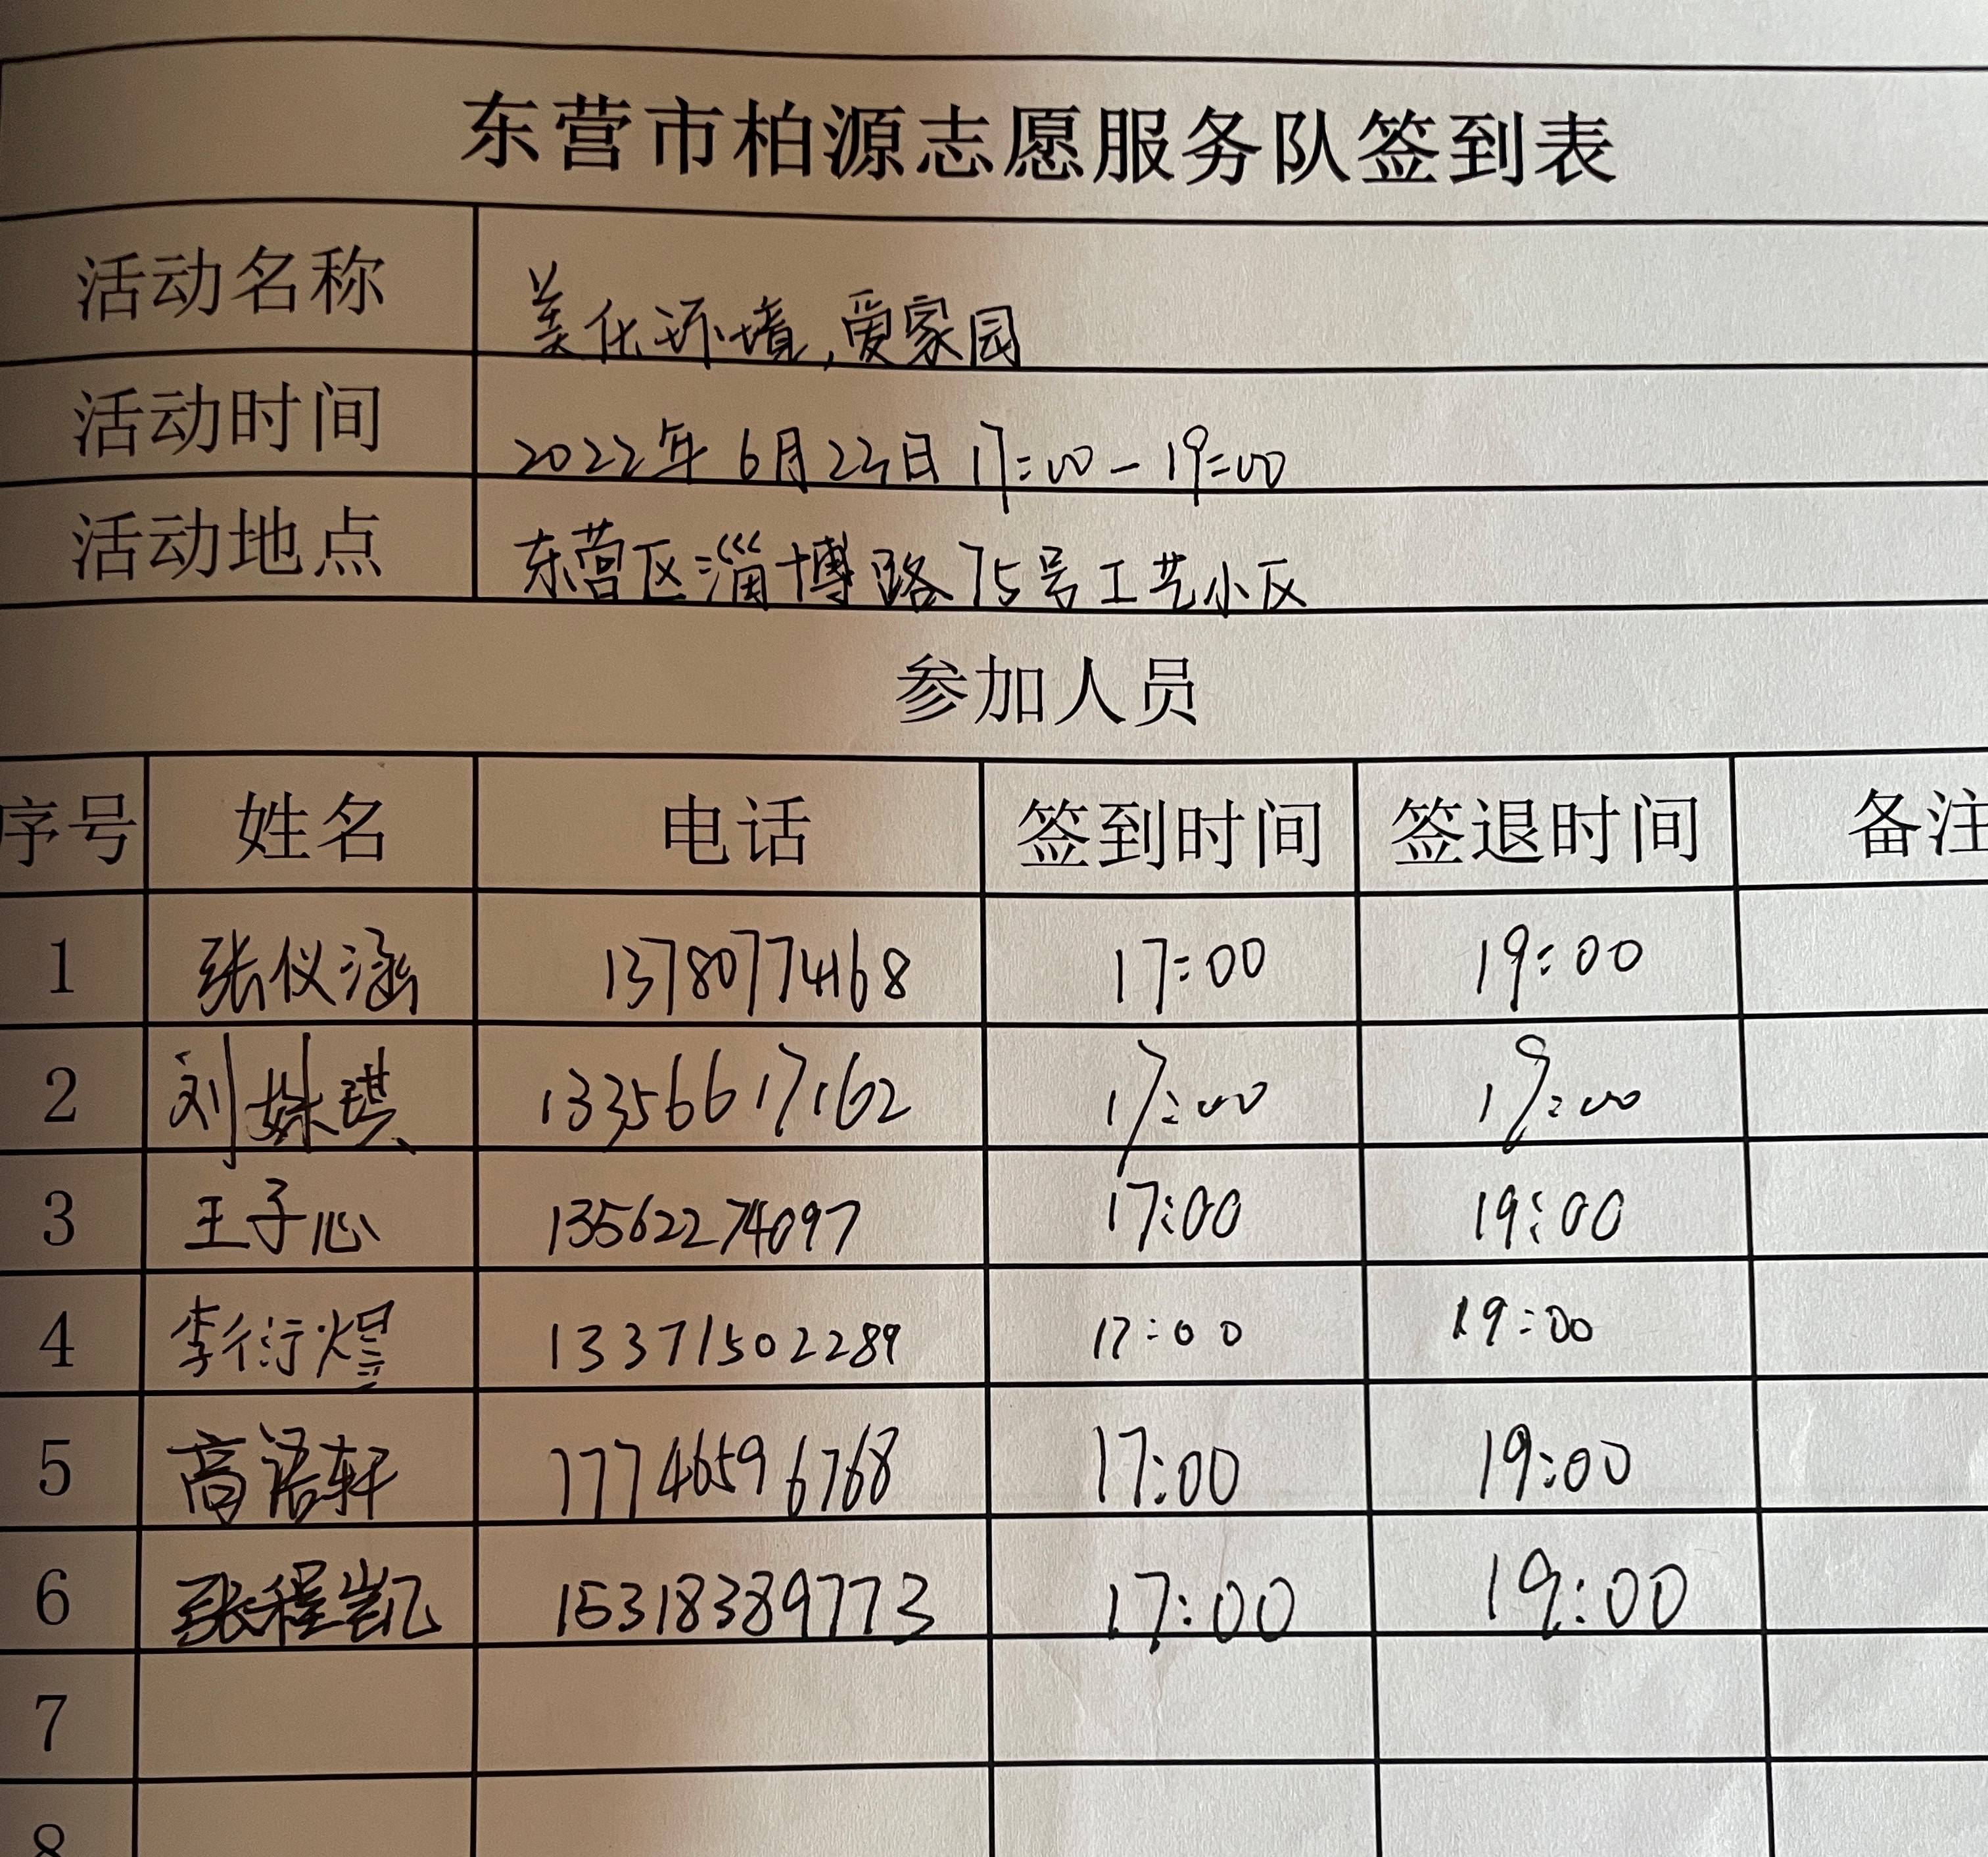 东营市柏源志愿服务队签到表
活动名称 美化环境,爱家园
活动时间 2022年6月23日17:00-19:00
活动地点 东营区淄博路75号工艺小区
参加人员
序号 姓名 电话 签到时间 签退时间 备注
1 张仪涵 13780774168 17:00 19:00
2 刘姝琪 13356617162 17:00 19:00
3 王子心 13562274097 17:00 19:00
4 李衍煜 13371502289 17:00 19:00
5 高语轩 17746596768 17:00 19:00
6 张程凯 15318389773 17:00 19:00
7
8